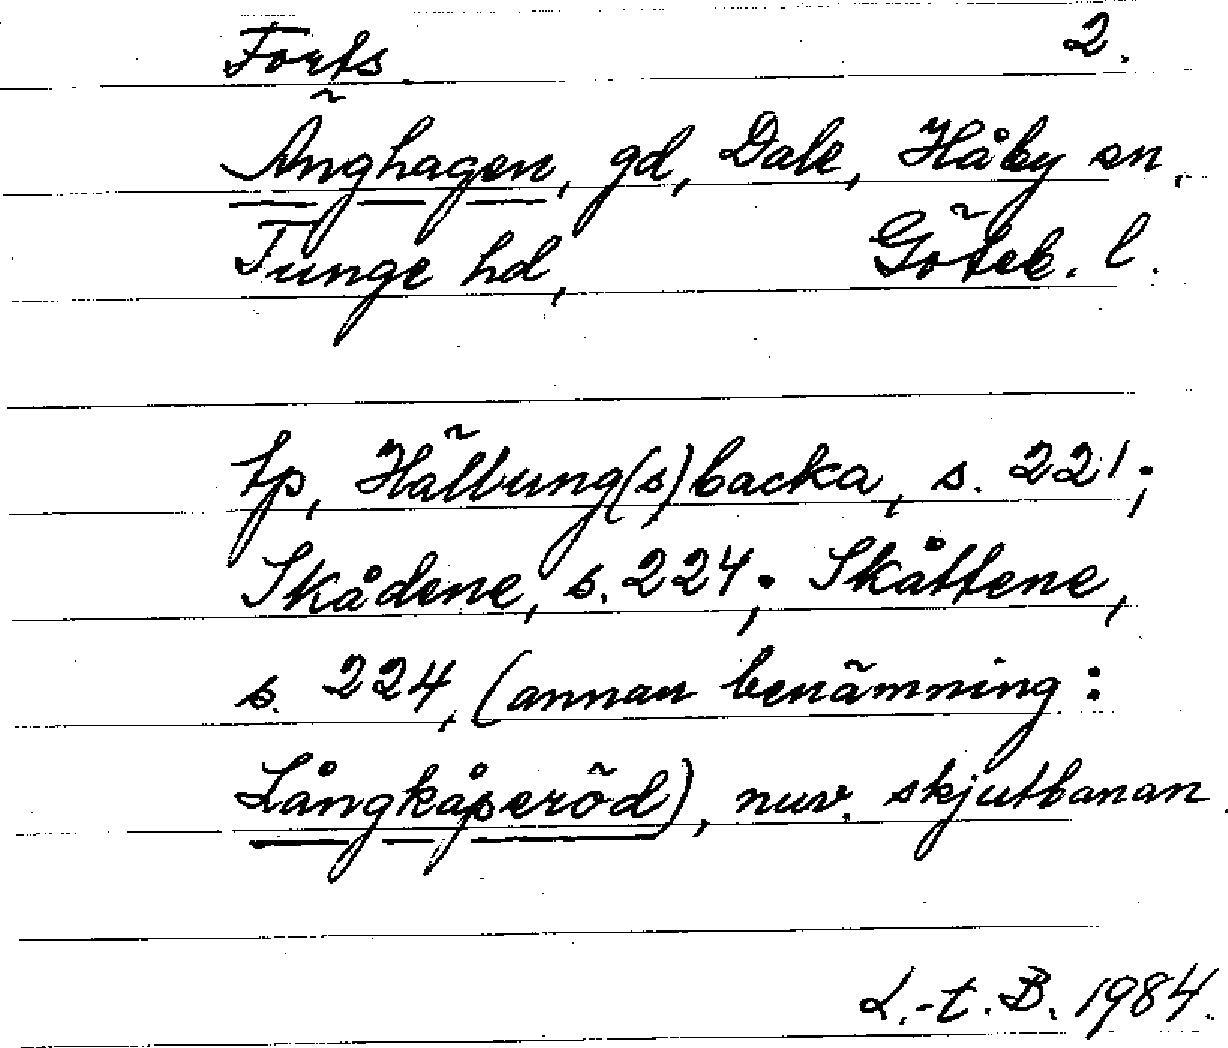 Forts. 2.
Änghagen, gd, Dale, Håby sn,
Tunge hd, Göteb. l.
tp, Hällung(s)backa, s. 221;
Skådene, s. 224; Skåttene,
s. 224, (annan benämning:
Långkåseröd), nuv. skjutbanan.
L.-t. B. 1984.